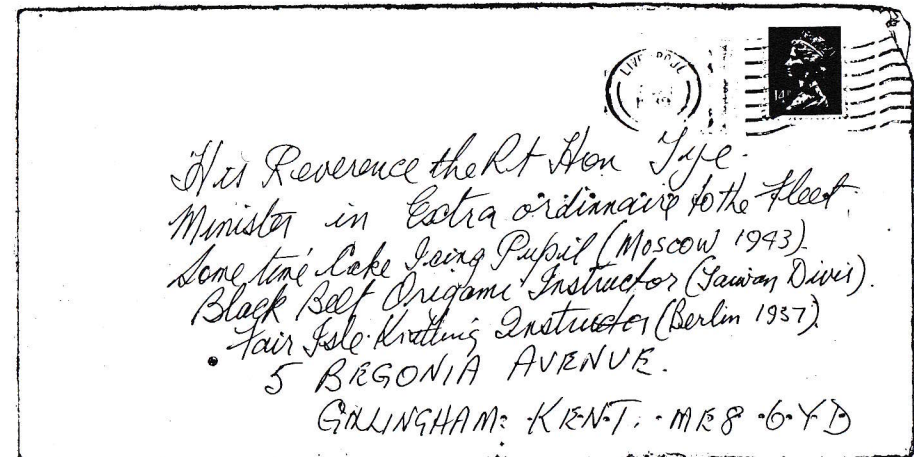 LIVERPOOL
14P
His Reverence the Rt Hon Tye.
Minister in Extra ordinnaire to the Fleet.
Some time Cake Icing Pupil (Moscow 1943).
Black Belt Origami Instructor (Taiwan Divis).
Fair Isle Knitting Instructor (Berlin 1937).
5 BEGONIA AVENUE.
GILLINGHAM: KENT. ME8 6YD